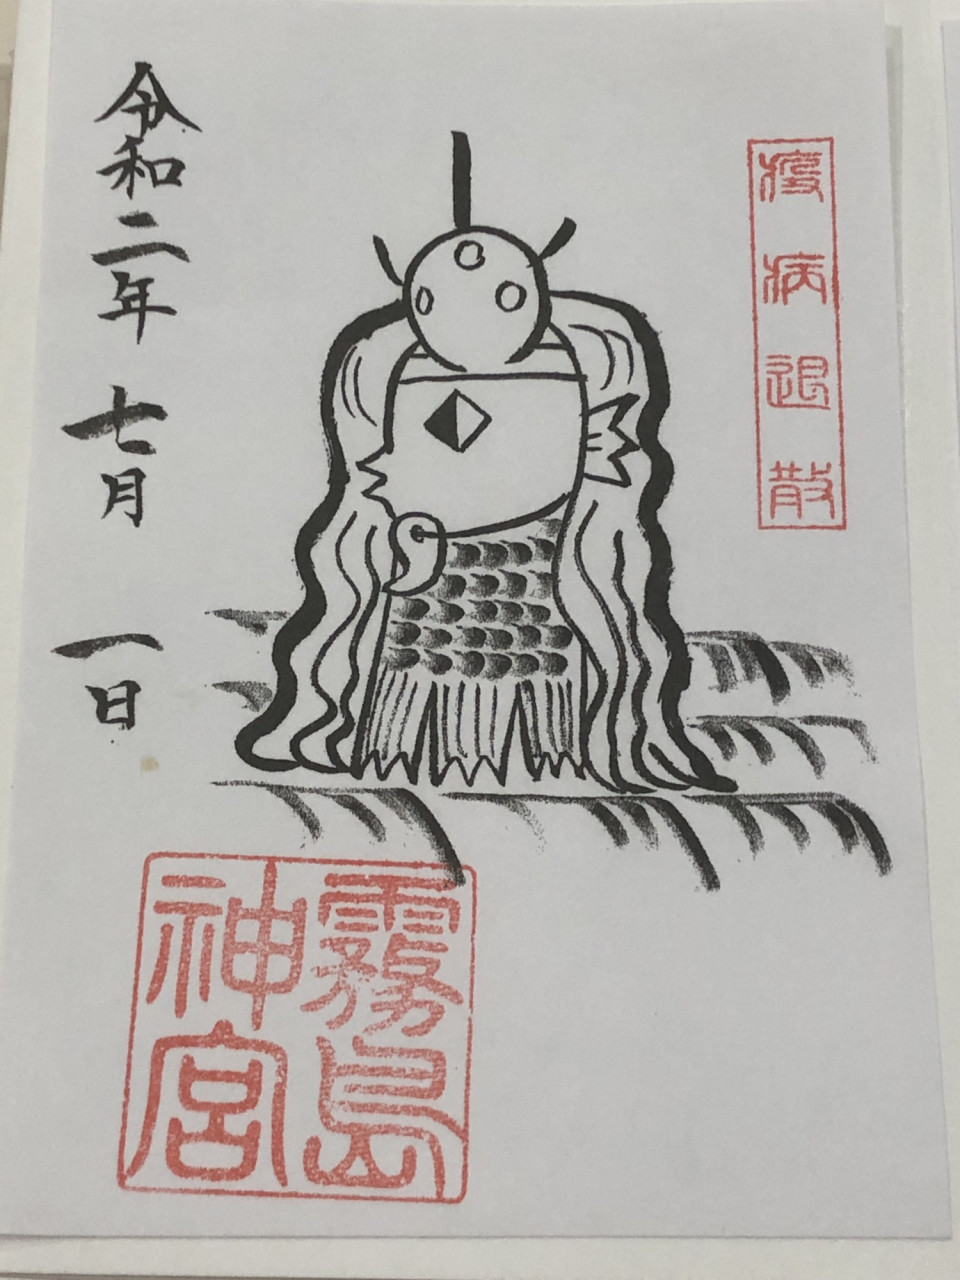 疫病退散
令和二年 七月 一日
霧島
神宮